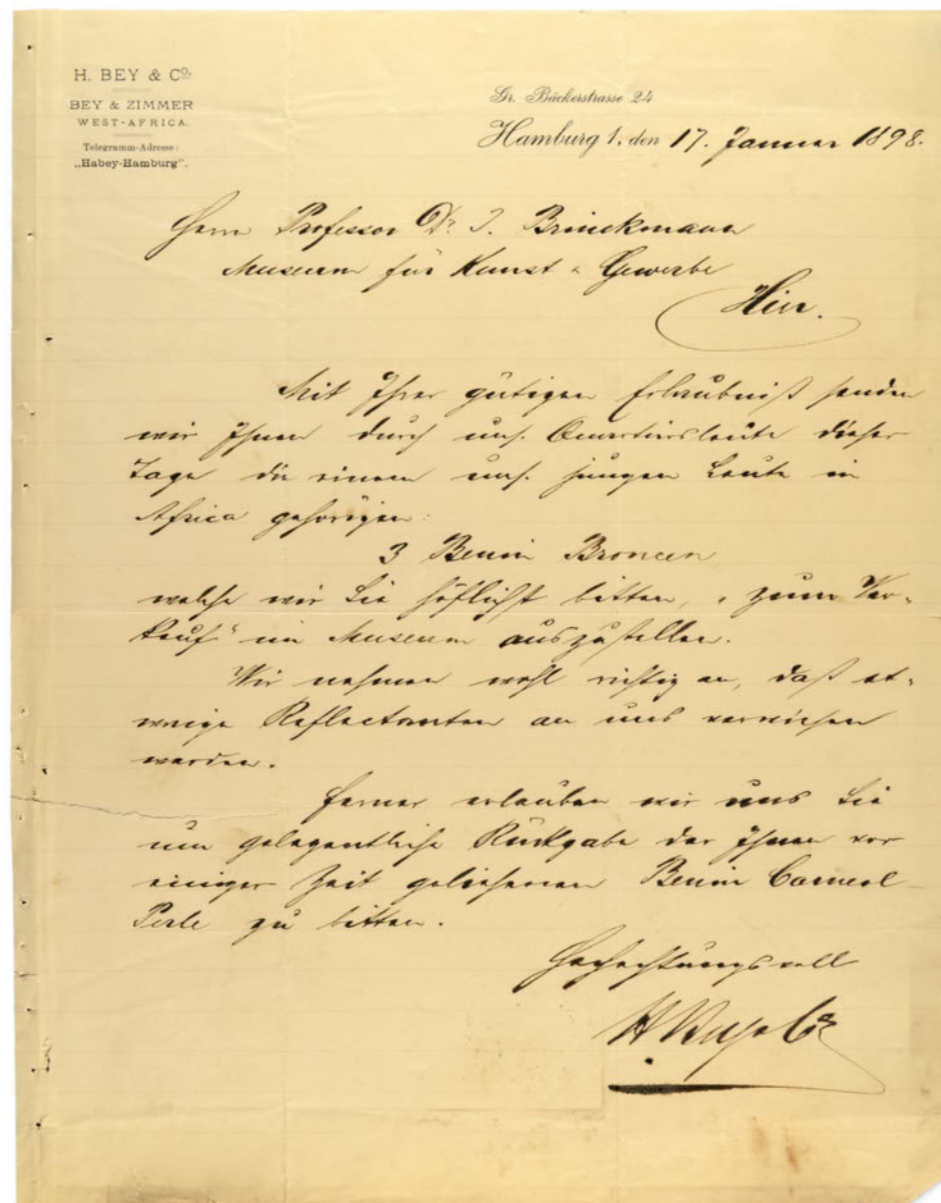 H. BEY & Co.
BEY & ZIMMER
WEST-AFRICA.
Telegramm-Adresse:
„Habey-Hamburg".
Gr. Bäckerstrasse 24
Hamburg 1, den 17. Januar 1898.
Herrn Professor Dr. J. Brinckmann
Museum für Kunst & Gewerbe
Hier.
Mit Ihrer gütigen Erlaubniß senden
wir Ihnen durch uns. Quartiersleute dieser
Tage die einem uns. jungen Leute in
Africa gehörigen:
3 Benin Broncen
welche wir Sie höflichst bitten, „zum Ver-
kauf" im Museum auszustellen.
Wir nehmen wohl richtig an, daß et-
waige Reflectanten an uns verwiesen
werden.
Ferner erlauben wir uns Sie
um gelegentliche Rückgabe der Ihnen vor
einiger Zeit geliehenen Benin Carneol
Perle zu bitten.
Hochachtungsvoll
H Bey & Co